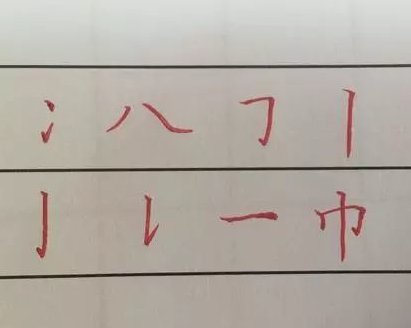 冫 八 ㇆ 丨
亅 ㇙ 一 巾